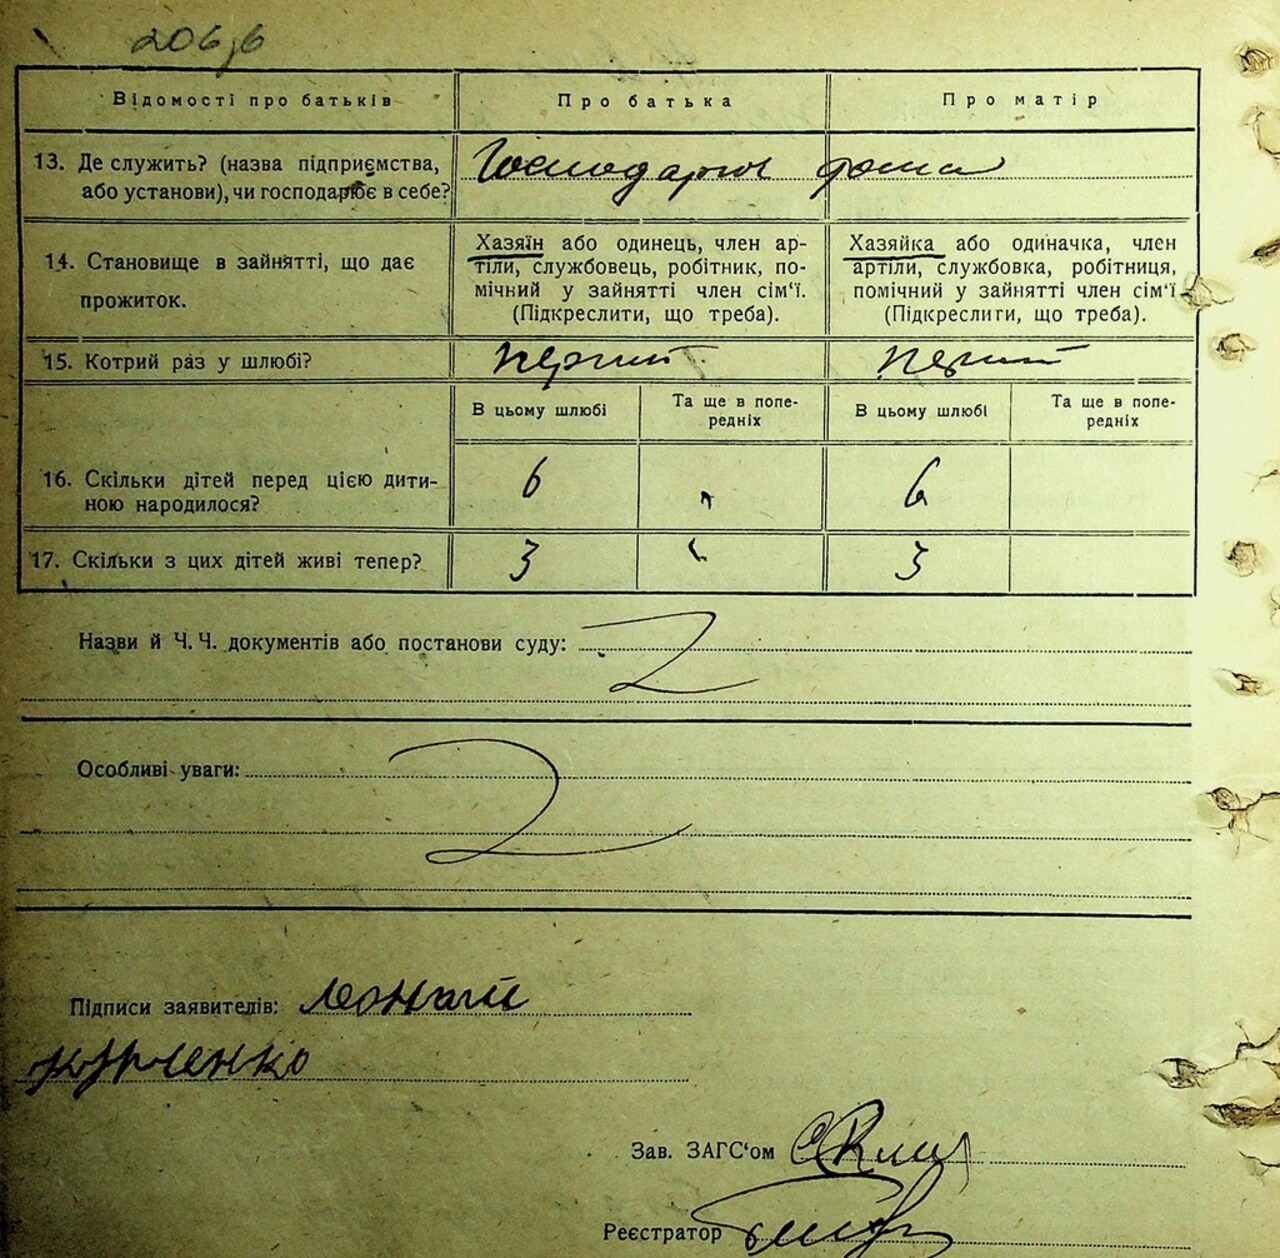 206
Відомості про батьків
Про батька
Про матір
13. Де служить? (назва підприємства,
або установи), чи господарює в себе?
14. Становище в зайнятті, що дає
прожиток.
Хазяїн або одинець, член ар-
тіли, службовець, робітник, по-
мічний у зайнятті член сім‘ї.
(Підкреслити, що треба).
Хазяйка або одиначка, член
артіли, службовка, робітниця,
помічний у зайнятті член сім‘ї
(Підкреслиги, що треба).
15. Котрий раз у шлюбі?
перший
перший
В цьому шлюбі
Та ще в попе-
редніх
В цьому шлюбі
Та ще в попе-
редніх
16. Скільки дітей перед цією дити-
ною народилося?
6
6
17. Скільки з цих дітей живі тепер?
3
3
Назви й Ч. Ч. документів або постанови суду:
Особливі уваги:
Підписи заявителів:
Зав. ЗАГС‘ом
Реєстратор